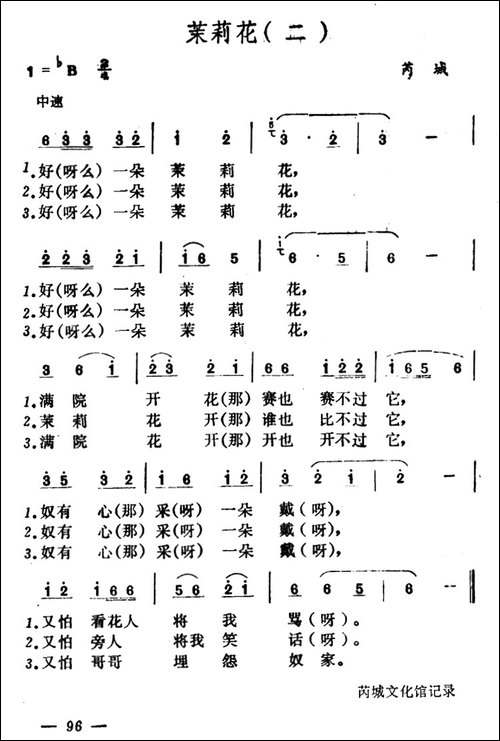 茉莉花(二)
1=♭B 2/4
芮城
中速
6 3 3 3 2 | 1 2 | 3 · 2 | 3 — |
1.好(呀么)一朵 茉 莉 花,
2.好(呀么)一朵 茉 莉 花,
3.好(呀么)一朵 茉 莉 花,
2 2 3 2 1 | 1 6 5 | 6 · 5 | 6 — |
1.好(呀么)一朵 茉 莉 花,
2.好(呀么)一朵 茉 莉 花,
3.好(呀么)一朵 茉 莉 花,
3 6 1 | 2 3 2 1 | 6 6 1 2 2 | 1 6 5 6 |
1.满 院 开 花(那)赛也 赛不过 它,
2.茉 莉 花 开(那)谁也 比不过 它,
3.满 院 花 开(那)开也 开不过 它,
3 5 3 2 | 1 6 2 2 | 3 · 2 1 | 2 — |
1.奴有 心(那)采(呀)一朵 戴(呀),
2.奴有 心(那)采(呀)一朵 戴(呀),
3.奴有 心(那)采(呀)一朵 戴(呀),
1 2 1 6 6 | 5 6 2 1 | 6 6 5 | 6 — ‖
1.又怕 看花人 将 我 骂(呀)。
2.又怕 旁人 将我 笑 话(呀)。
3.又怕 哥哥 埋 怨 奴 家。
芮城文化馆记录
— 96 —